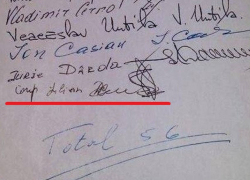 Vladimir Cirro
Veaceslav Untila V. Untila
Ion Casian I. Cas
Iurie Dârda
comp. Iulian
Total 56